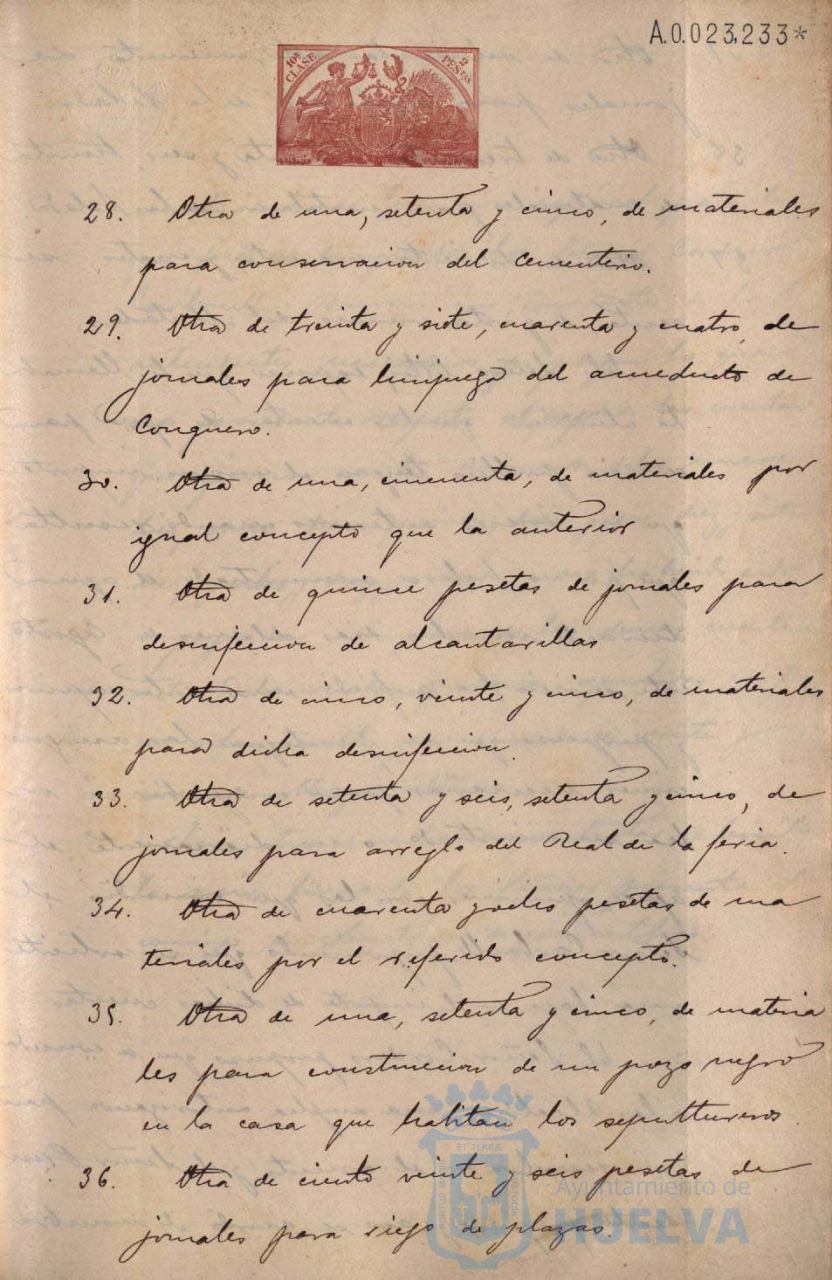 A.0.023,233*
10ª CLASE
2 PESTAS
28. Otra de una, setenta y cinco, de materiales
para conservacion del Cementerio.
29. Otra de treinta y siete, cuarenta y cuatro, de
jornales para limpieza del acueducto de
Conquero.
30. Otra de una, cincuenta, de materiales por
igual concepto que la anterior
31. Otra de quince pesetas de jornales para
desinfeccion de alcantarillas
32. Otra de cinco, veinte y cinco, de materiales
para dicha desinfeccion.
33. Otra de setenta y seis, setenta y cinco, de
jornales para arreglo del Real de la feria.
34. Otra de cuarenta y ocho pesetas de ma
teriales por el referido concepto.
35. Otra de una, setenta y cinco, de materia
les para construccion de un pozo negro
en la casa que habitan los sepultureros.
36. Otra de ciento veinte y seis pesetas de
jornales para riego de plazas.
Ayuntamiento de
HUELVA